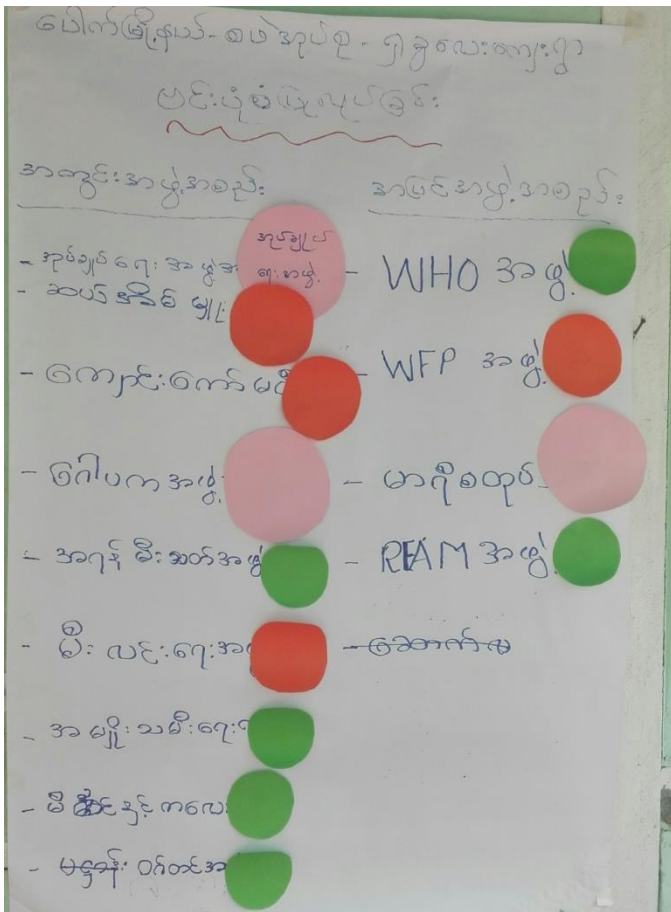 ပေါက်မြို့နယ် - စဖဲအုပ်စု - ရှားခွလေးကျေးရွာ
ဗင်းပုံစံပြုလုပ်ခြင်း
အတွင်းအဖွဲ့အစည်း
- အုပ်ချုပ်ရေး အဖွဲ့
အုပ်ချုပ်
ရေးအဖွဲ့
- ဆယ်အိမ်မှူး
- ကျောင်းကော်မတီ
- ဂေါပကအဖွဲ့
- အရန် မီးသတ်အဖွဲ့
- မီးလင်းရေး
- အမျိုးသမီးရေး
- မိခင်နှင့် ကလေး
- ဝက်တင်
အပြင်အဖွဲ့အစည်း
- WHO အဖွဲ့
- WFP အဖွဲ့
- မာရီစတုပ်
- REAM အဖွဲ့